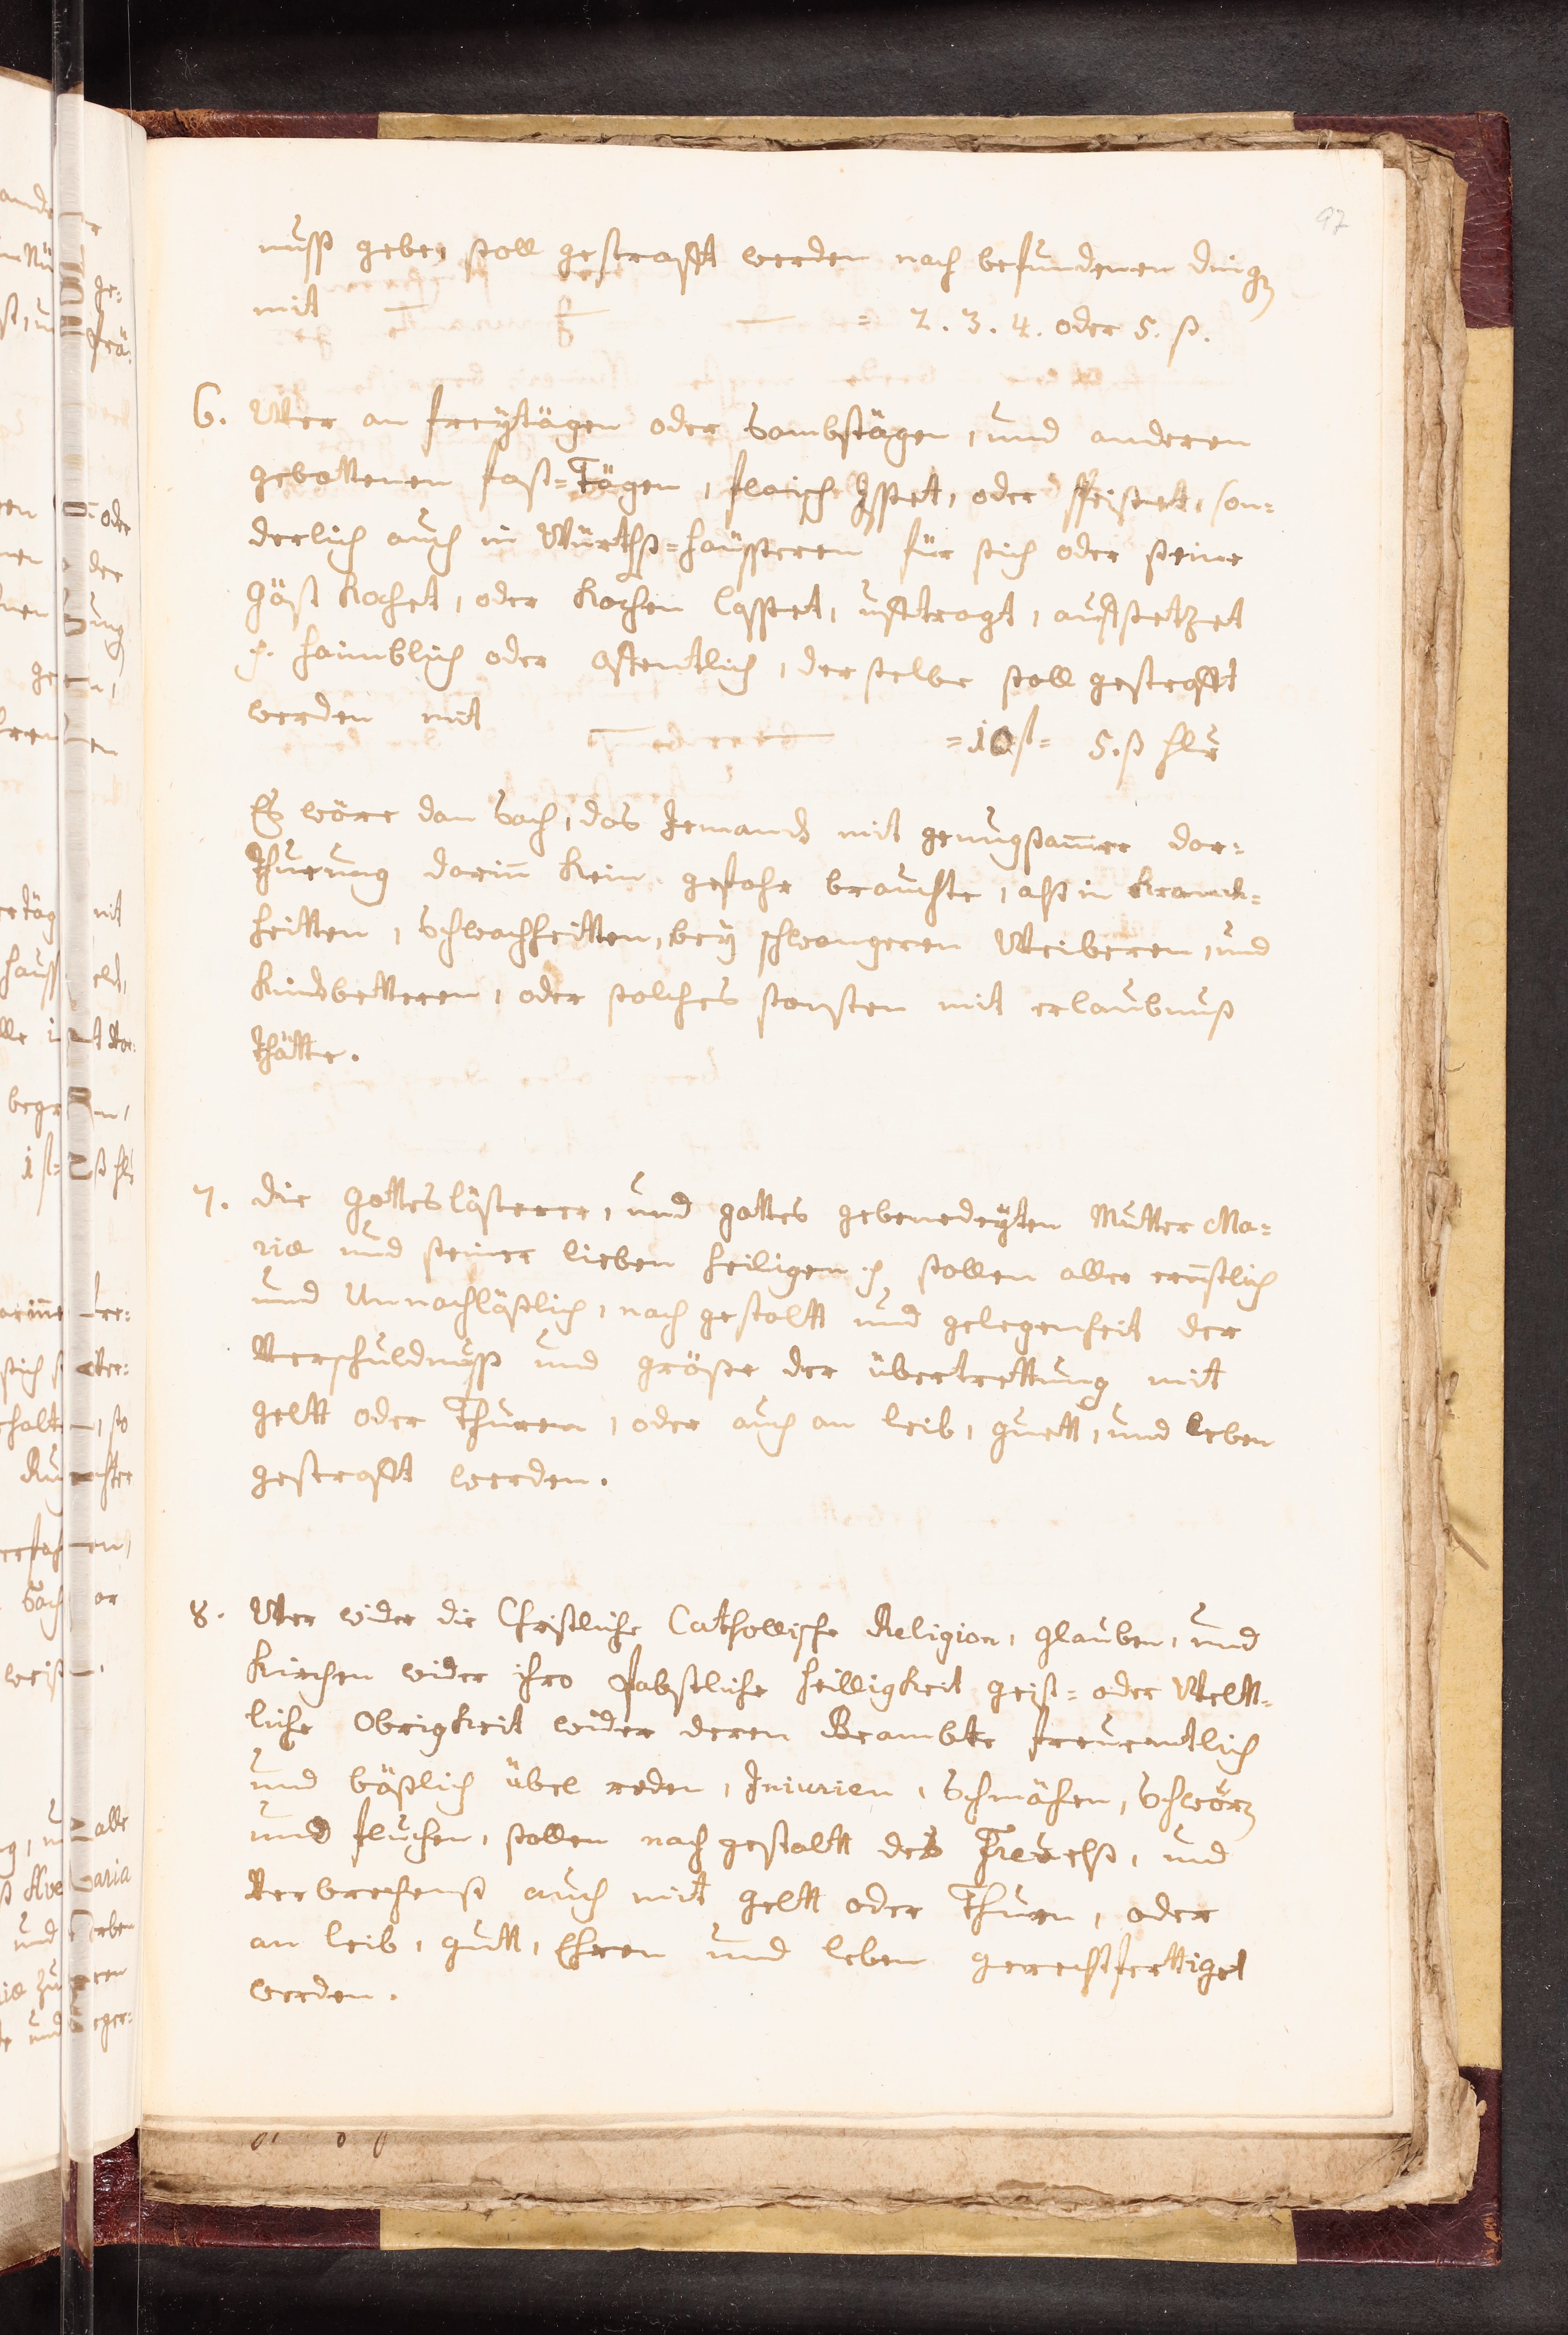 97
nuss gebe, soll gestrafft werden nach befundenen dingen
mit = 2. 3. 4. oder 5. ß.
6. Wer an freÿtägen oder Sambstägen, und anderen
gebottenen fast=Tägen, fleisch Isset, oder speiset, son=
derlich auch in Würthß=haüsseren für sich oder seine
Gäst kochet, oder kochen lasset, ufftragt, aufsetzet
haimblich oder offentlich, derselbe soll gestrafft
werden mit =10 5. ß hlr
Es wäre dan Sach, das Jemands mit genugsamer dar=
thuung darinn kein gefahr brauchte, alß in kranck=
heitten, Schwachheitten, beÿ schwangeren Weiberen, und
kindbetteren, oder solches sonsten mit erlaubnuß
thätte.
7. Die Gotteslästerer, und gottes gebenedeÿten Mutter Ma=
riæ und seiner lieben heiligen sollen aller ernstlich
und Unnachläßlich, nach gestaltt und gelegenheit der
Verschuldnuss und größe der übertrettung mit
geltt oder Thuren, oder auch an leib, guett, und leben
gestrafft werden.
8. Wer wider die Christliche Cathollische Religion, glauben, und
Kirchen wider ihro Pabstliche heilligkeit geist= oder Weltt=
liche Obrigkeit wider deren Beambte freuentlich
und bößlich übel reden, Iniurien, Schmähen, Schwören
und fluchen, sollen nach gestaltt deß Freuelß, und
Verbrechenß auch mit geltt oder Thuren, oder
an leib, gutt, Ehren und leben gerechtferttiget
werden.